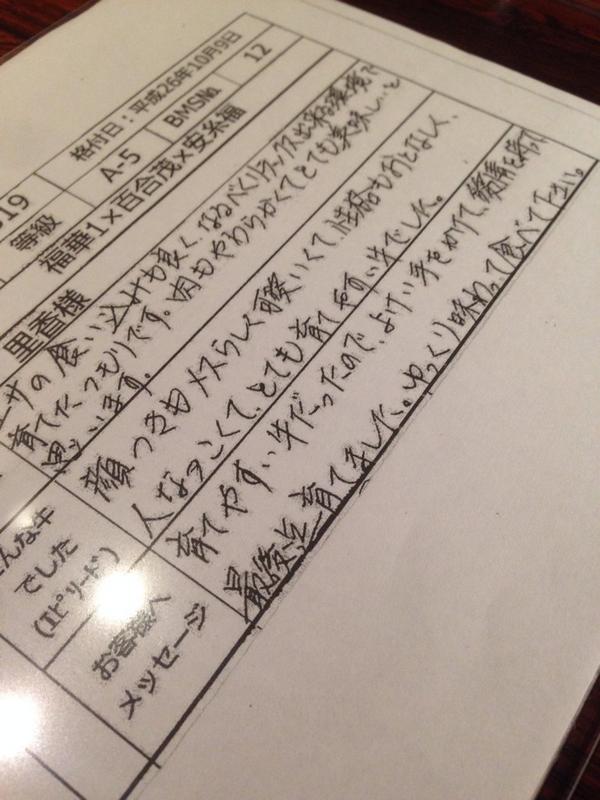 格付日：平成26年10月9日
19
等級
A-5
BMSNo.
12
福華1×百合茂×安糸福
里香様
エサの食い込みも良く、なるべくリラックス出来る環境で
育てたつもりです。肉もやわらかくてとても美味しいと
思います。
んな牛
でした
(エピソード)
顔つきもメスらしく可愛いくて、性格もおとなしく、
人なつこくて、とても育てやすい牛でした。
お客様へ
メッセージ
育てやすい牛だったので、よけい手をかけて、愛情を持って
最後迄育てました。ゆっくり味わって食べて下さい。